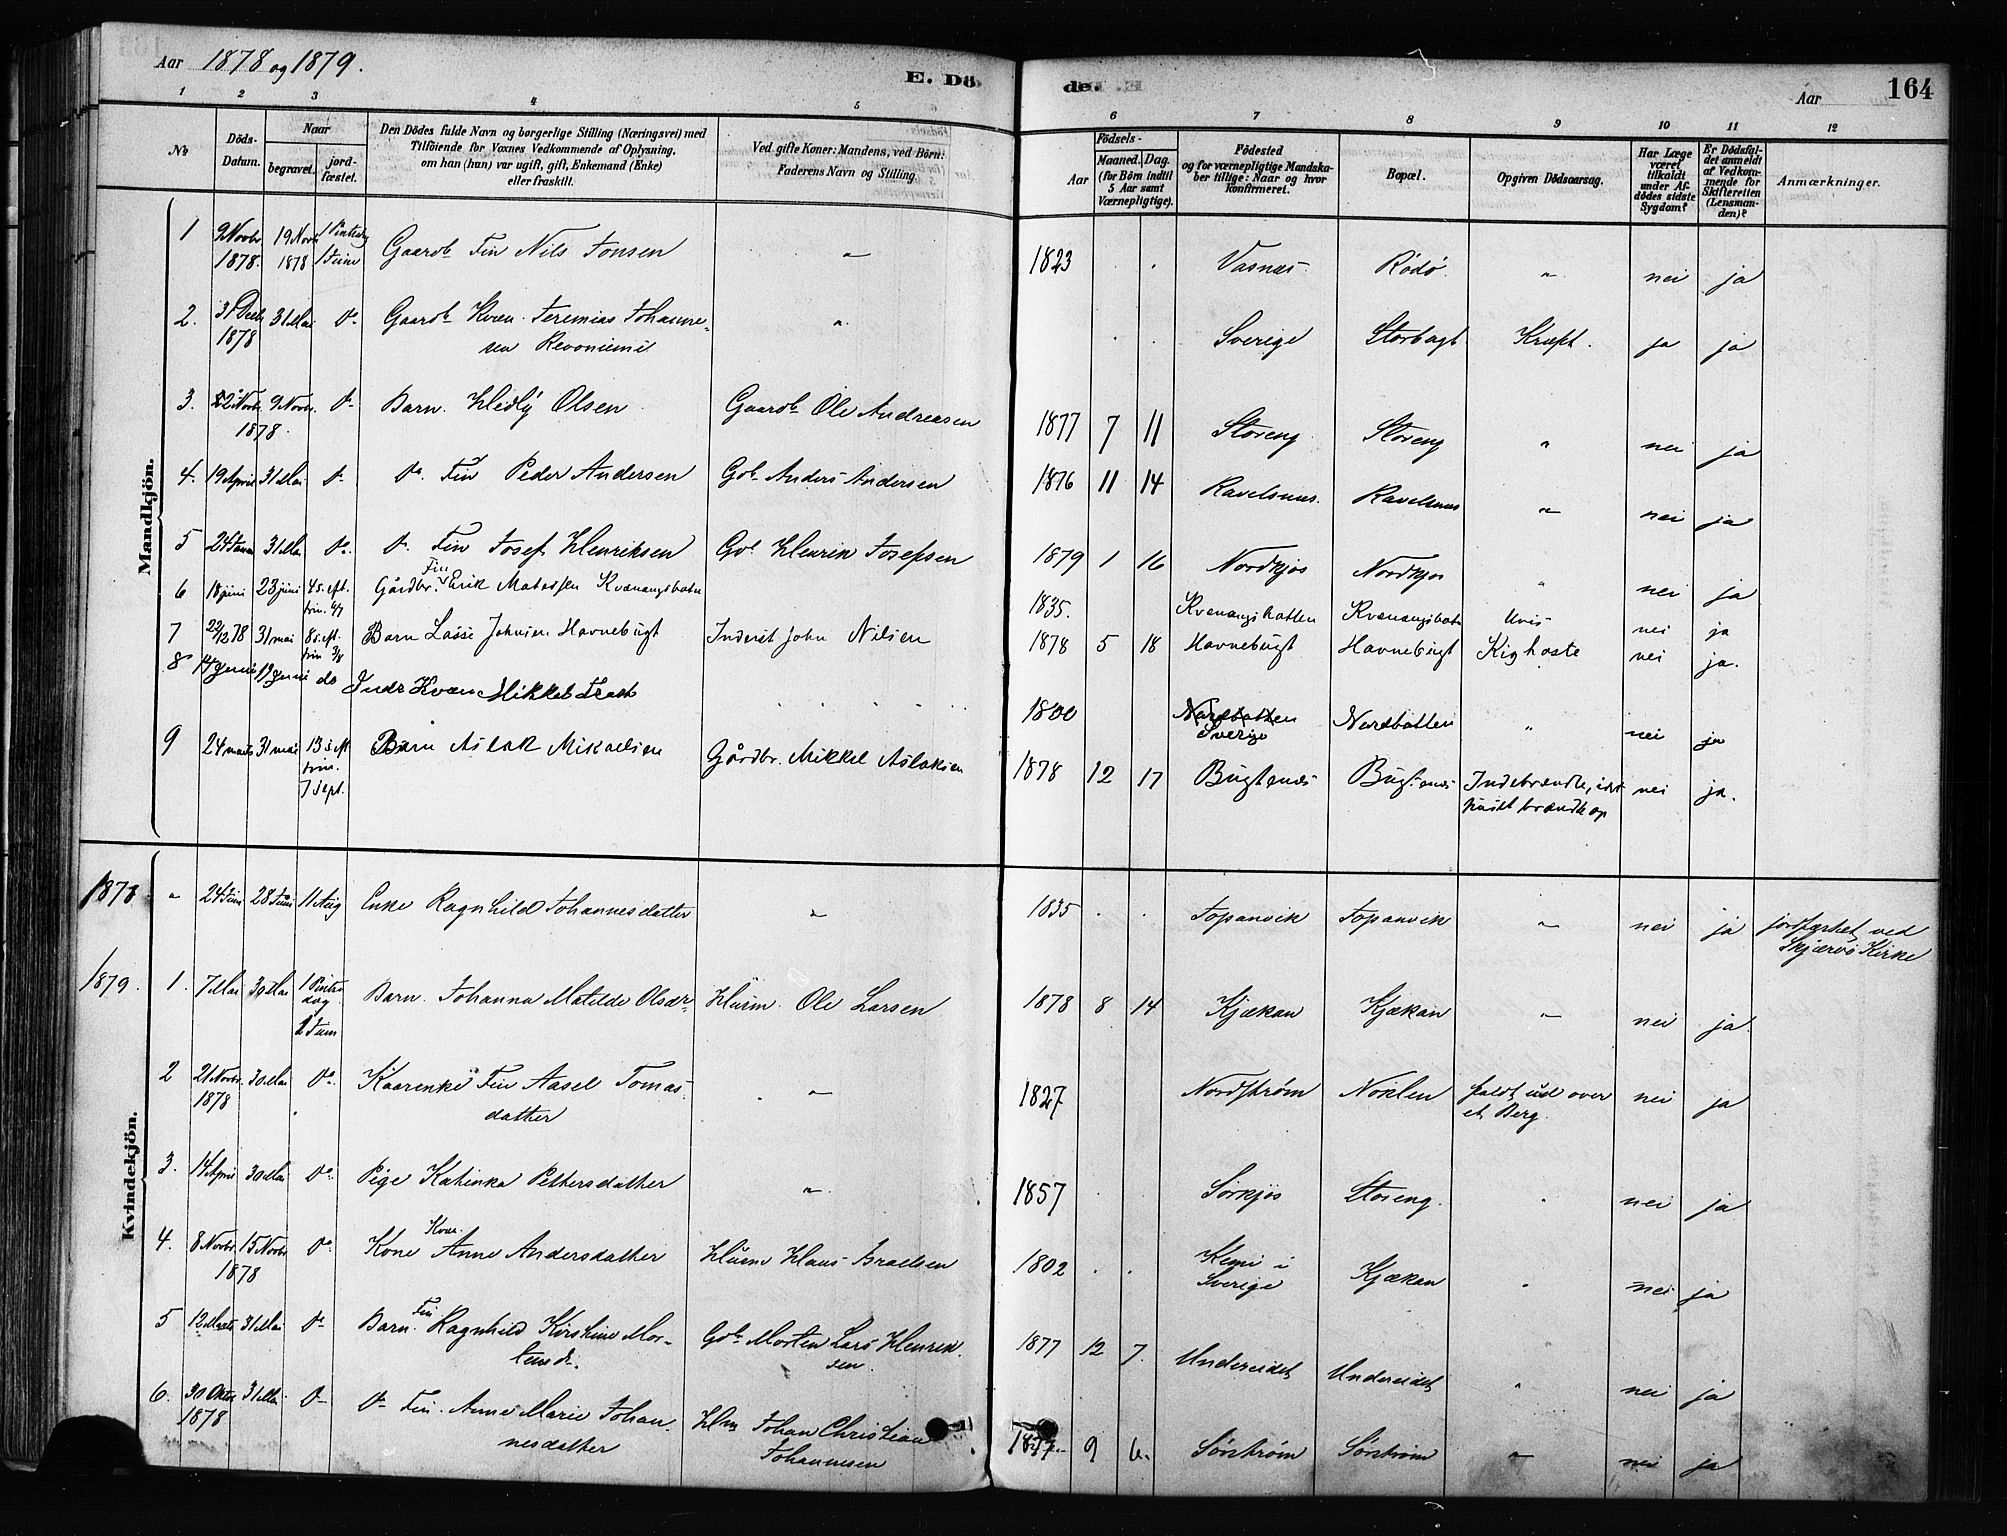 Aar 1878 og 1879.
E. Dö
de.
Aar
164
1 2 3 4 5 6 7 8 9 10 11 12
No
Döds-Datum.
Naar
begravet.
jord-fæstet.
Den Dödes fulde Navn og borgerlige Stilling (Næringsvei) med
Tilföiende for Voxnes Vedkommende af Oplysning,
om han (hun) var ugift, gift, Enkemand (Enke)
eller fraskilt.
Ved gifte Koner: Mandens, ved Börn:
Faderens Navn og Stilling.
Födsels-
Aar
Maaned. Dag.
(for Börn indtil
5 Aar samt
Værnepligtige).
Födested
og for værnepligtige Mandska-
ber tillige: Naar og hvor
konfirmeret.
Bopæl.
Opgiven Dödsaarsag.
Har Læge
været
tilkaldt
under Af-
dödes sidste
Sygdom?
Er Dödsfal-
det anmeldt
af Vedkom-
mende for
Skifteretten
(Lensman-
den)?
Anmærkninger.
Mandkjön.
1 9 Novbr 1878. 19 Novbr 1878 1 Pintsedag 1 Juni Gaardb Fin Nils Jonsen " 1823 . . Vasnæs Rödö " nei ja
2. 31 Decbr 1878 31 Mai do Gaardb Kvæn Jeremias Johanne-
sen Revoniemi " . . Sverige Storbugt Kræft. ja ja
3. 22 Novbr. 1878. 9 Novbr. do Barn. Hedly Olsen Gaardb Ole Andreasen 1877 7 11 Storeng Storeng " nei ja
4. 19 April 31 Mai do do Fin Peder Andersen Gb. Anders Andersen 1876 11 14 Ravelsnæs. Ravelsnæs " nei ja
5 24 Januar 31 Mai do. do. Fin Josef Henriksen Gb. Henrik Josefsen 1879 1 16 Nordkjos Nordkjos " nei ja
6 18 juni 23 juni 4 s. eft. trin. 6/7 Gårdbr. Fin Erik Matessen Kvænangsbotn 1835. Kvænangsbotten Kvænangsbotn Uvis nei ja
7 22/12 78 31 mai 8 s. eft. trin 3/8 Barn Lasse Johnsen Havnebugt Inderst John Nilsen 1878 5 18 Havnebugt Havnebugt Kighoste nei ja.
8 14 Juni 19 Juni do Inds Kvæn Mikkel Trast 1800 Nordbotten Sverige Nordbotten " nei ja
9 24 marts 31 mai 13 s eft trin. 7 sept. Barn Aslak Mikaelsen Gårdbr. Mikkel Aslaksen 1878 12 17 Bugtenæs Bugtenæs Indebrændte, idet
huset brændte op nei ja.
Kvindekjön.
1878 " 24 Juni 28 Juni 11 Aug Enke Ragnhild Johannesdatter " 1835 . . Topanvik Topanvik " nei ja jordfæstet ved
Skjærvö Kirke
1879. 1. 7 Mai 30 Mai 1 Pintsedag 1 Juni Barn. Johanna Matilde Olsdr Husm. Ole Larsen 1878 8 14 Kjækan Kjækan " nei ja.
2 21 Novbr. 1878 30 Mai do. Kaarenke Fin Aasel Tomas-
datter " 1827 Nordström Noklen faldt ud over
et Berg. nei ja
3. 14 April 30 Mai do. Pige Katinka Pettersdatter " 1857 . . Sörkjos Storeng. " nei ja
4. 8 Novbr. 1878 15 Novbr do Kone Kvæn. Anne Andersdatter Husm Klaus Israelsen 1802 . . Kemi i
Sverige Kjækan " nei ja
5 12 Marts 31 Mai do Barn. Fin Ragnhild Kirstine Mor-
tensdr. Gb. Morten Lars Henrik-
sen. 1877 12 7. Undereidet Undereidet " nei ja
6. 30 Oktbr 1878 31 Mai do do Fin. Anne Marie Johan-
nesdatter Hm Johan Christian
Johannesen 1877 9 6. Sörström Sörström " nei ja